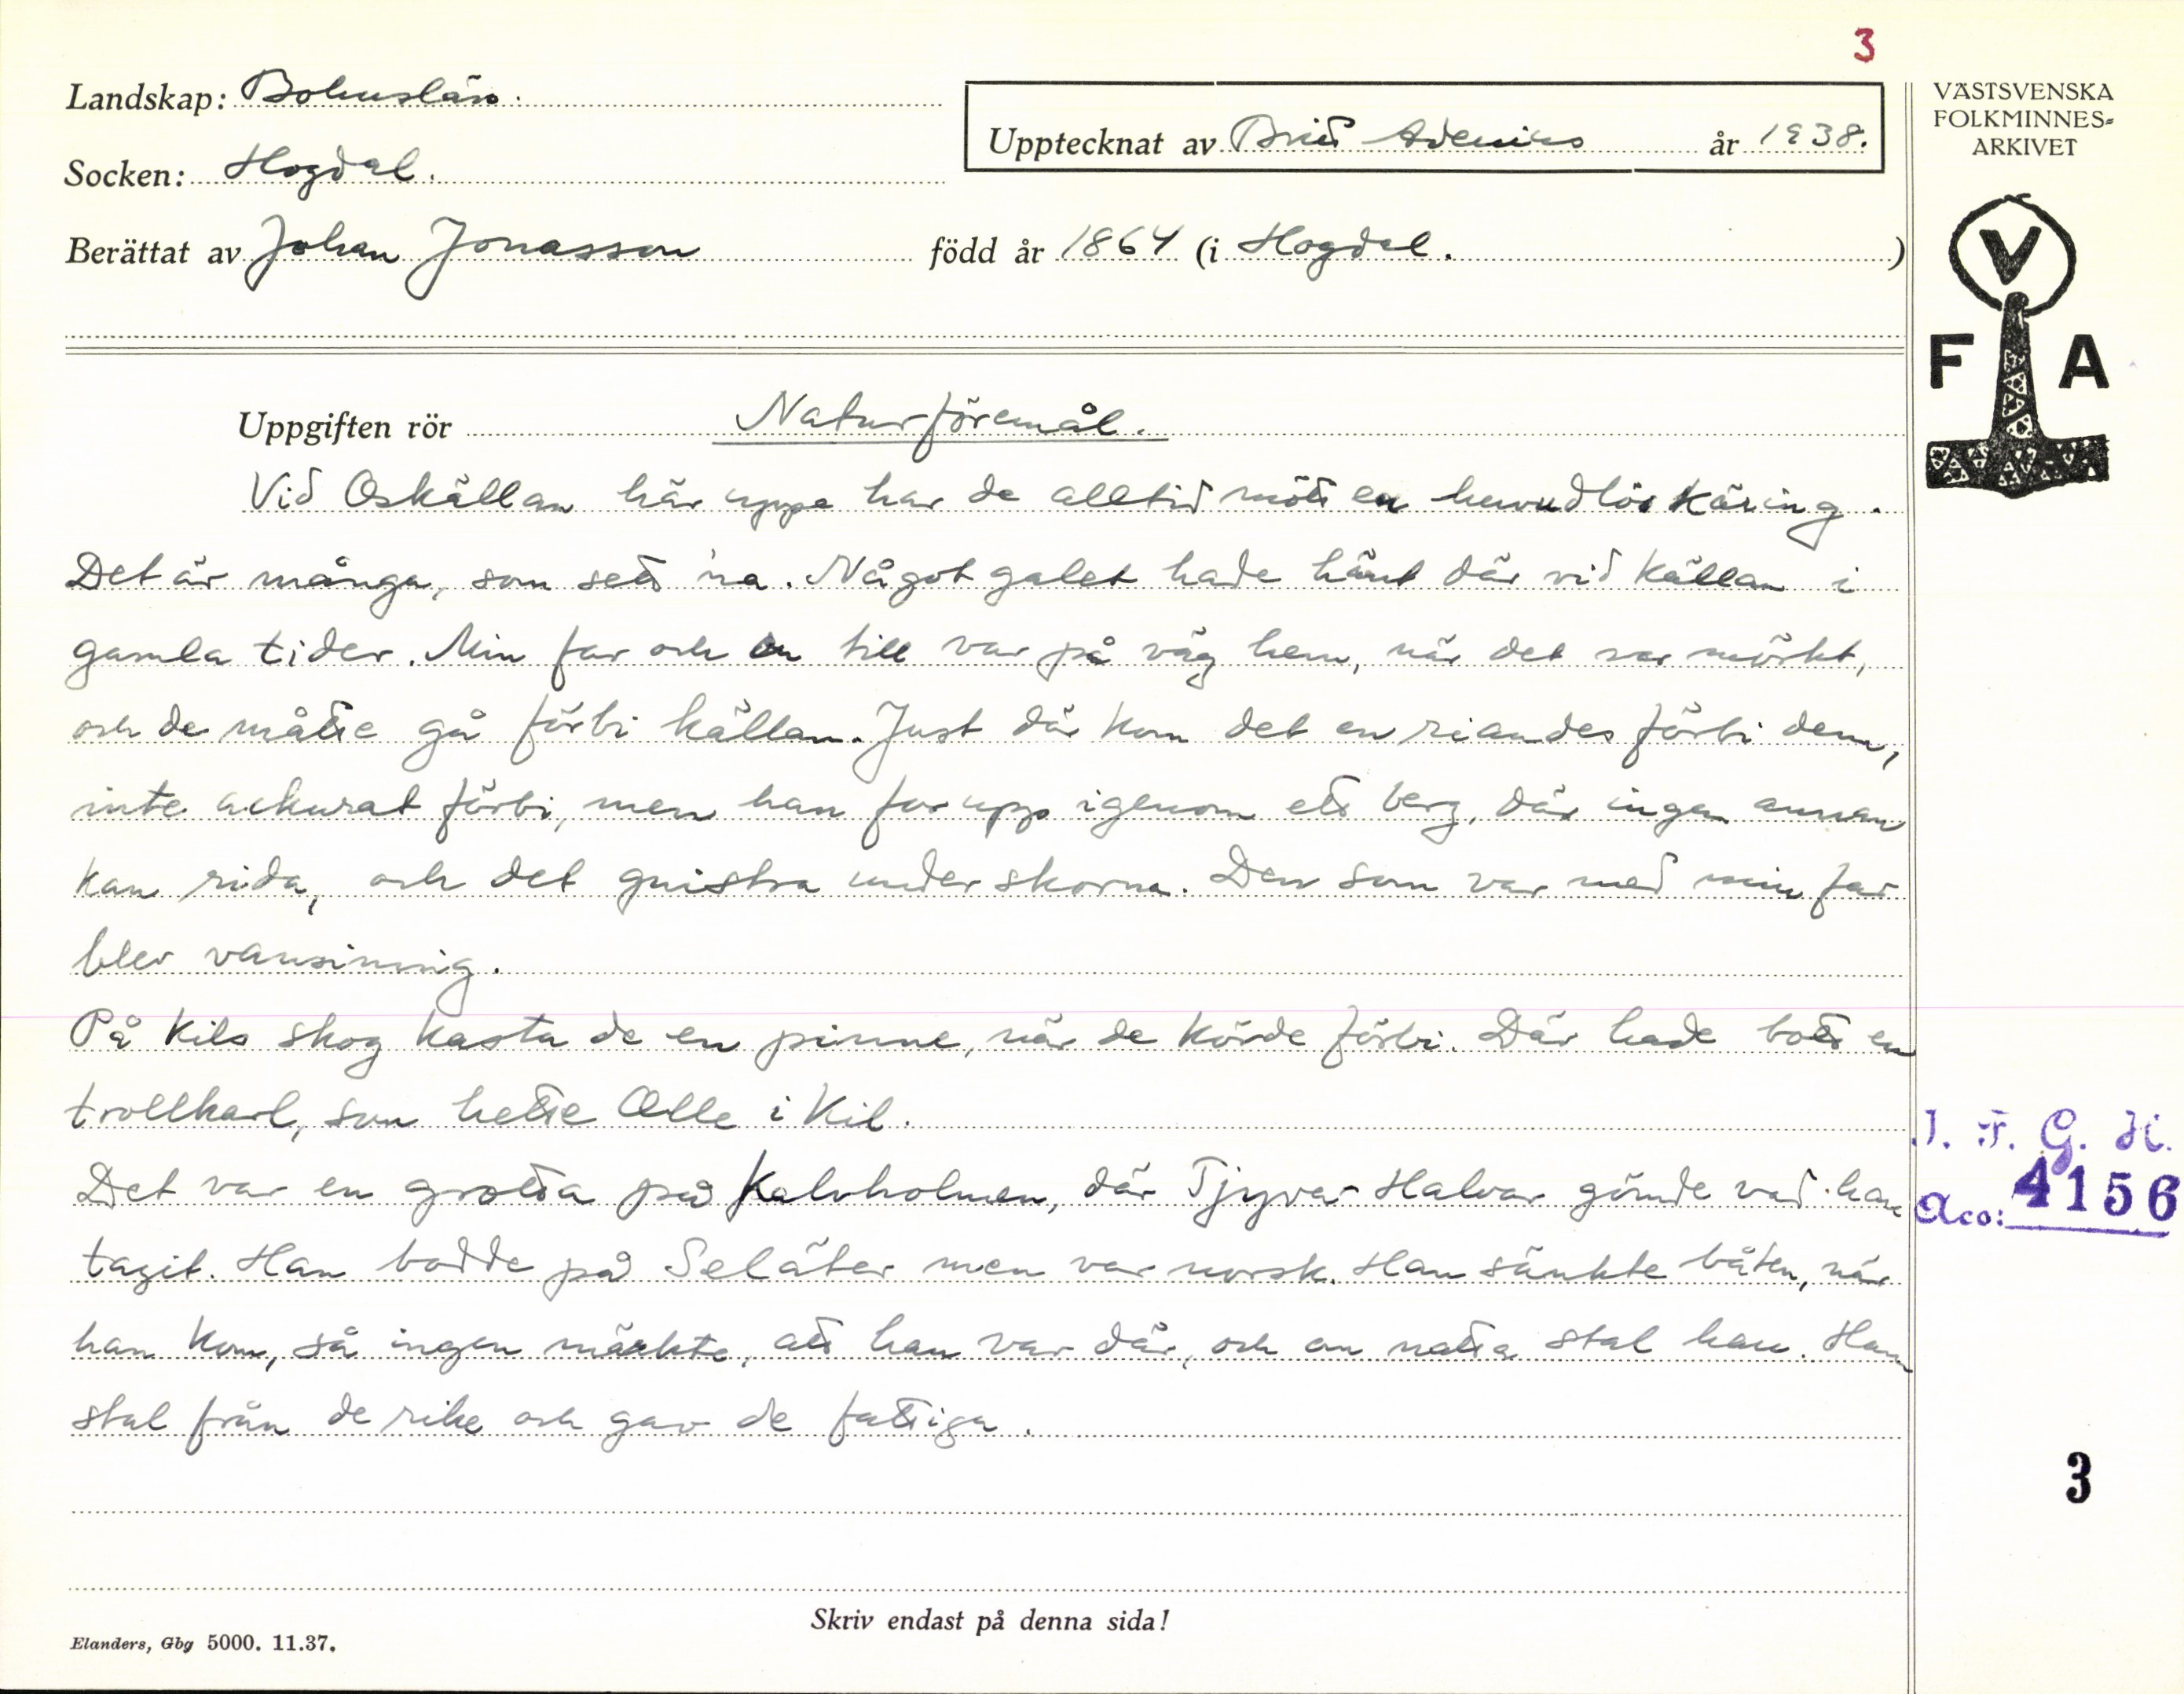 3
Landskap: Bohuslän.
Upptecknat av Britt Adenius år 1938.
Socken: Hogdal.
Berättat av Johan Jonasson född år 1864 (i Hogdal. )
VÄSTSVENSKA
FOLKMINNES-
ARKIVET
V
F A
Uppgiften rör Naturföremål.
Vid Oskällan här uppe har de alltid mött en huvudlös käring.
Det är många, som sett 'na. Något galet hade hänt där vid källan i
gamla tider. Min far och en till var på väg hem, när det var mörkt,
och de måtte gå förbi källan. Just där kom det en riandes förbi dem,
inte ackurat förbi, men han for upp igenom ett berg, där ingen annan
kan rida, och det gnistra under skorna. Den som var med min far
blev vansinnig.
På Kils skog kasta de en pinne, när de körde förbi. Där hade bott en
trollkarl, som hette Olle i Kil.
Det var en grotta på Kalvholmen, där Tjyva-Halvar gömde vad han
tagit. Han bodde på Seläter men var norsk. Han sänkte båten, när
han kom, så ingen märkte, att han var där, och om natta stal han. Han
stal från de rike och gav de fattiga.
I. F. G. H.
Acc: 4156
3
Skriv endast på denna sida!
Elanders, Gbg 5000. 11.37.